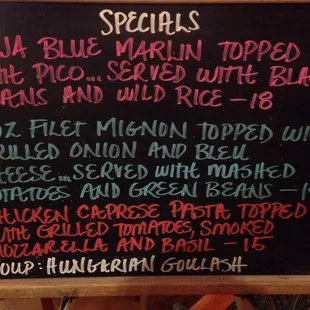 SPECIALS
BLUE MARLIN TOPPED
PICO... SERVED WITH
AND WILD RICE - 18
FILET MIGNON TOPPED
ONION AND BLEU
SERVED WITH MASHED
AND GREEN BEANS -
CHICKEN CAPRESE PASTA TOPPED
WITH GRILLED TOMATOES, SMOKED
MOZZARELLA AND BASIL - 15
SOUP: HUNGARIAN GOULASH